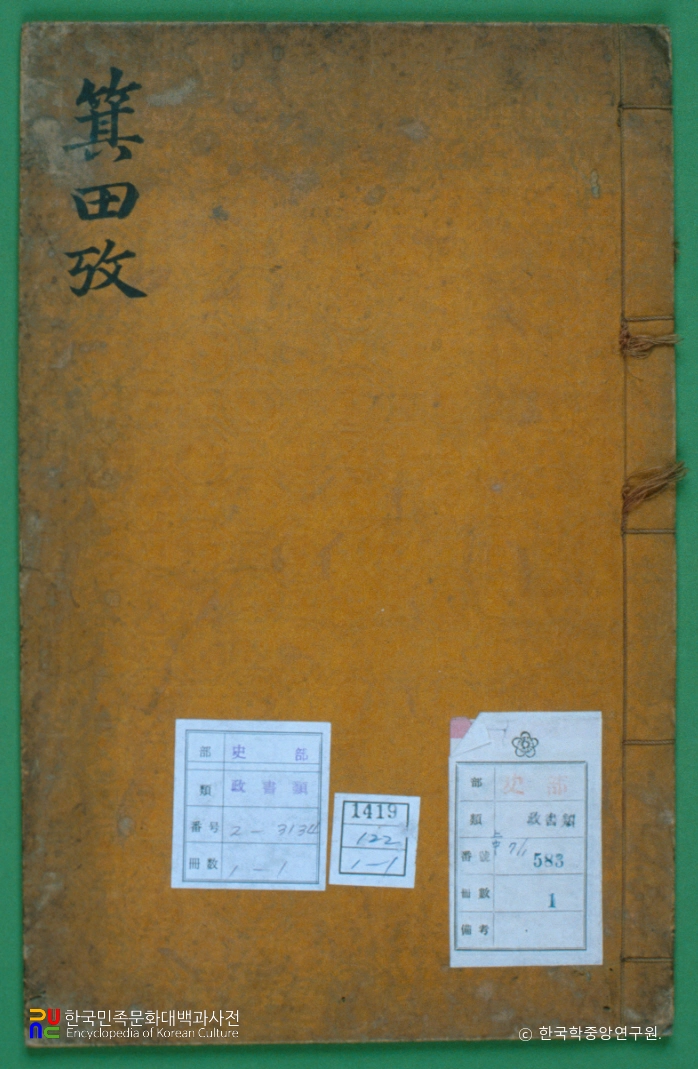 箕田攷
部 史 部
類 政書類
番号 2-3134
冊数 1-1
1419
122
1-1
部 史部
類 政書類
番號 583
冊數 1
備考
한국민족문화대백과사전
Encyclopedia of Korean Culture
© 한국학중앙연구원.